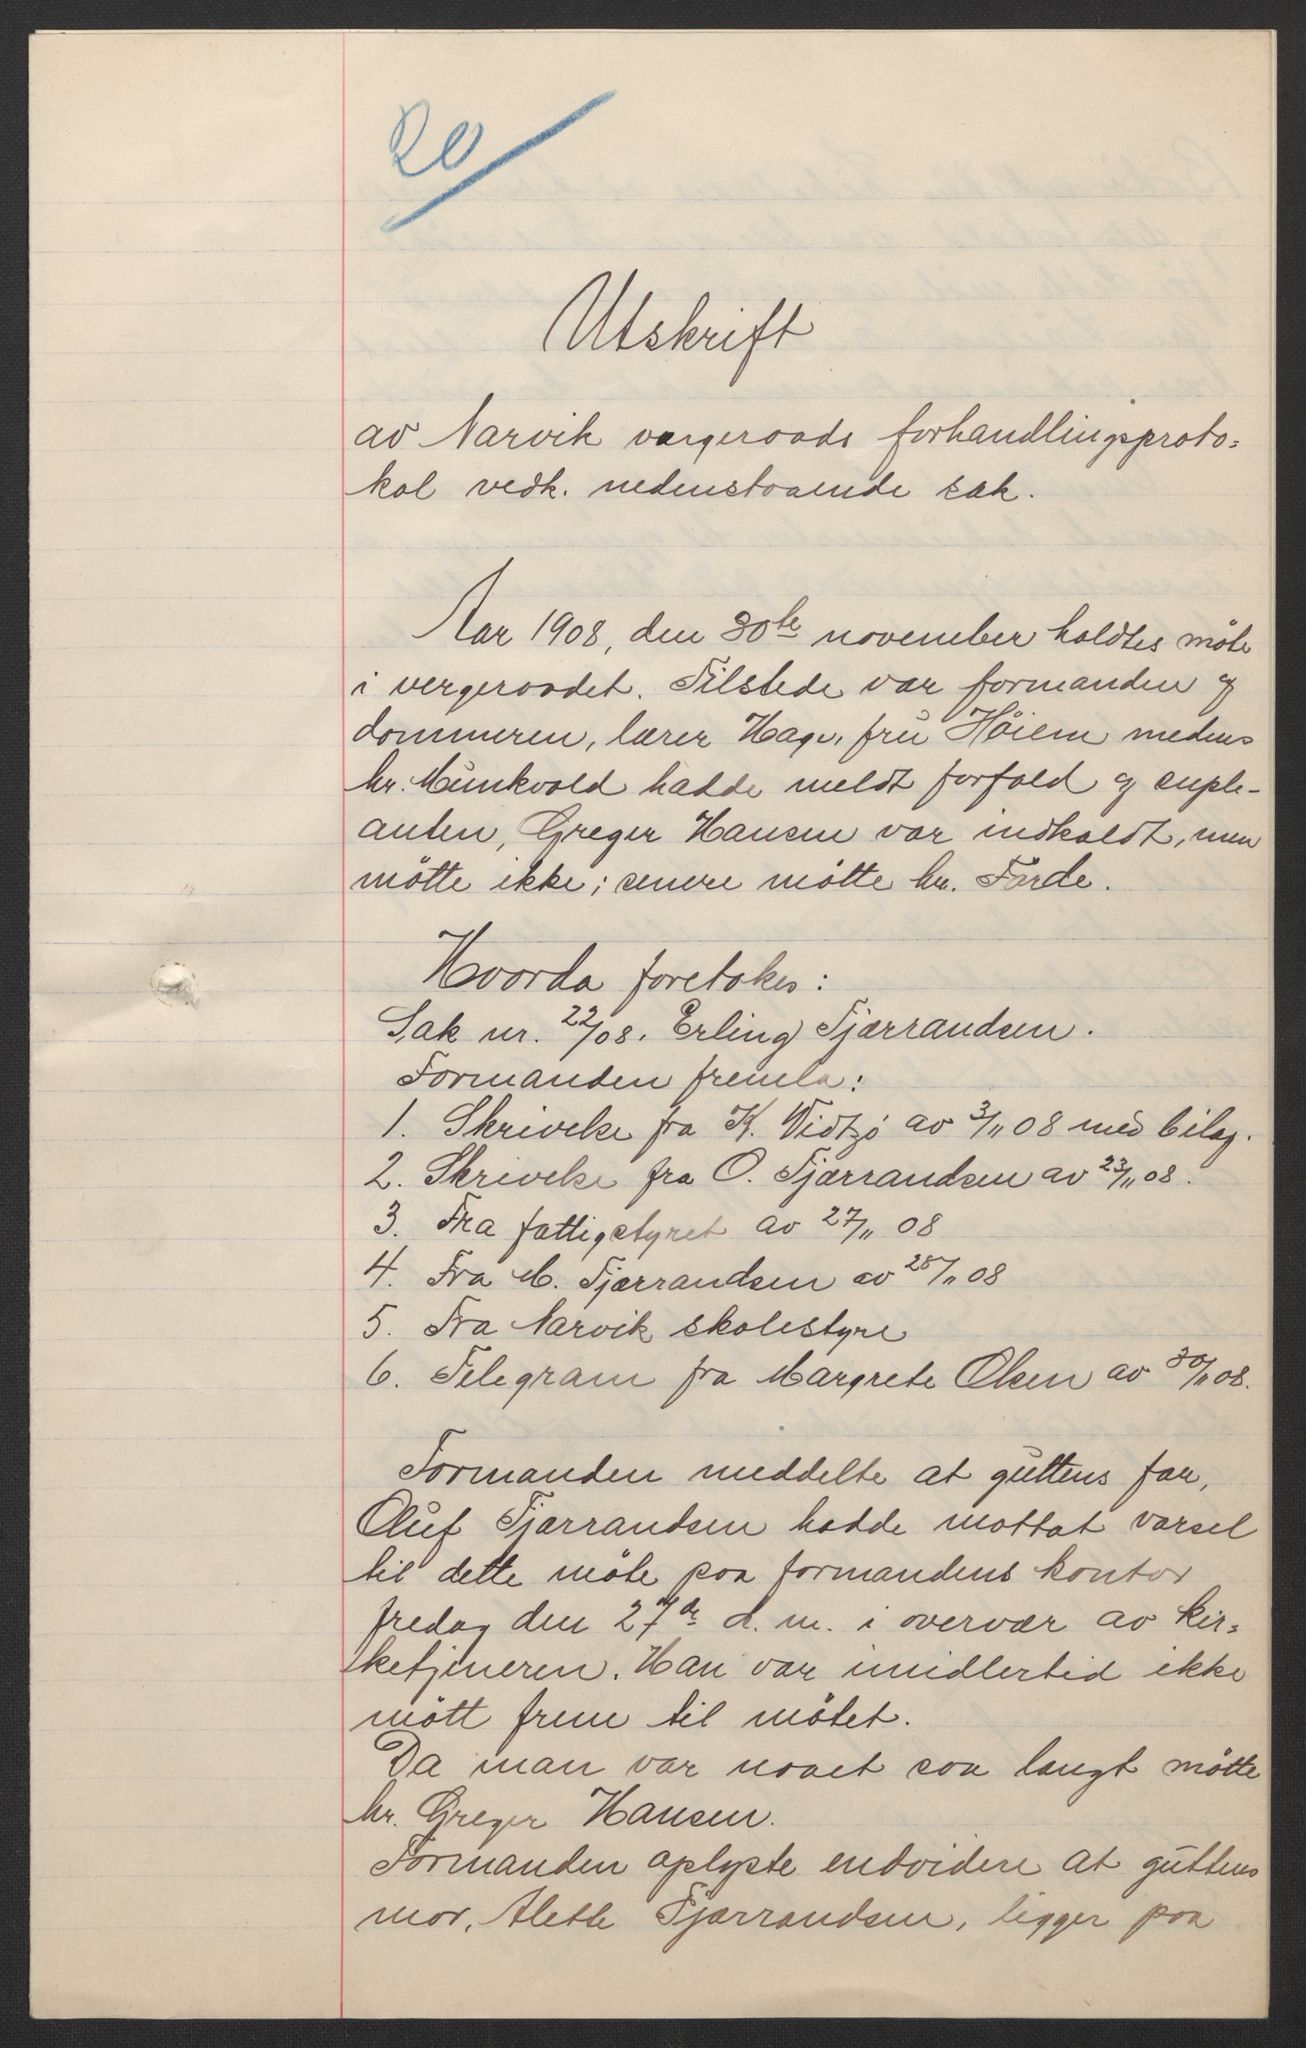 20
Utskrift
av Narvik vergeraads forhandlingsproto=
kol vedk. nedenstaaende sak.
Aar 1908, den 30te november holdtes möte
i vergeraadet. Tilstede var formanden og
dommeren, lærer Hage, fru Höiem medens
hr. Munkvold hadde meldt forfald og suple-
anten, Greger Hansen var indkaldt, men
mötte ikke; senere mötte hr.Förde.
Hvorda foretokes:
Sak nr. 22/08. Erling Tjærrandsen.
Formanden fremla:
1. Skrivelse fra K. Vidtzö av 3/11 08 med bilag.
2. Skrivelse fra O. Tjærrandsen av 23/11 08.
3. Fra fattigstyret av 27/11 08
4. Fra M. Tjærrandsen av 28/11 08
5. Fra Narvik skolestyre
6. Telegram fra Margrete Olsen av 30/11 08.
Formanden meddelte at guttens far,
Oluf Tjærrandsen hadde mottat varsel
til dette möte paa formandens kontor
fredag den 27de d. m. i overvær av kir=
ketjeneren. Han var imidlertid ikke
mött frem til mötet.
Da man var naaet saa langt mötte
hr. Greger Hansen.
Formanden oplyste endvidere at guttens
mor, Alette Tjærrandsen, ligger paa